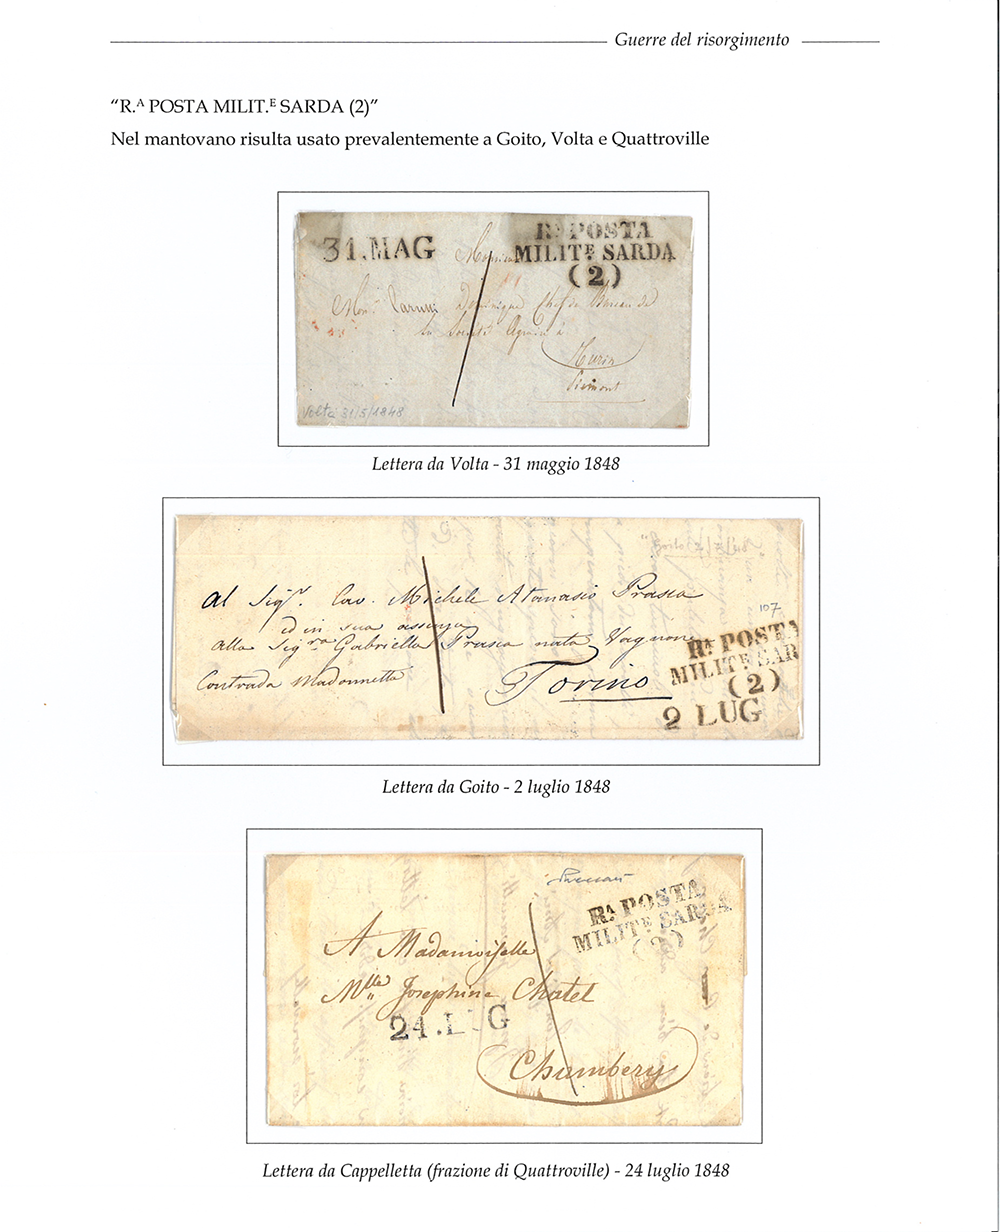 Guerre del risorgimento
“R.ᴬ POSTA MILIT.ᴱ SARDA (2)”
Nel mantovano risulta usato prevalentemente a Goito, Volta e Quattroville
31.MAG
Rᴬ POSTA
MILITᴱ SARDA
(2)
Dominique Chef de Bureau de
la Société
Turin
Piémont
Volta 31/5/1848
Lettera da Volta - 31 maggio 1848
107
Al Sigʳ. Cav. Michele Atanasio Prasca
ed in sua assenza
alla Sigʳᵃ Gabriella Prasca nata Vagnone
Contrada Madonnetta
Torino
Rᴬ POSTA
MILITᴱ SAR
(2)
2 LUG
Lettera da Goito - 2 luglio 1848
Rᴬ POSTA
MILITᴱ SARDA
(2)
A Madamoiselle
Mˡˡᵉ Josephine Chatel
24.LUG
Chambery
Lettera da Cappelletta (frazione di Quattroville) - 24 luglio 1848